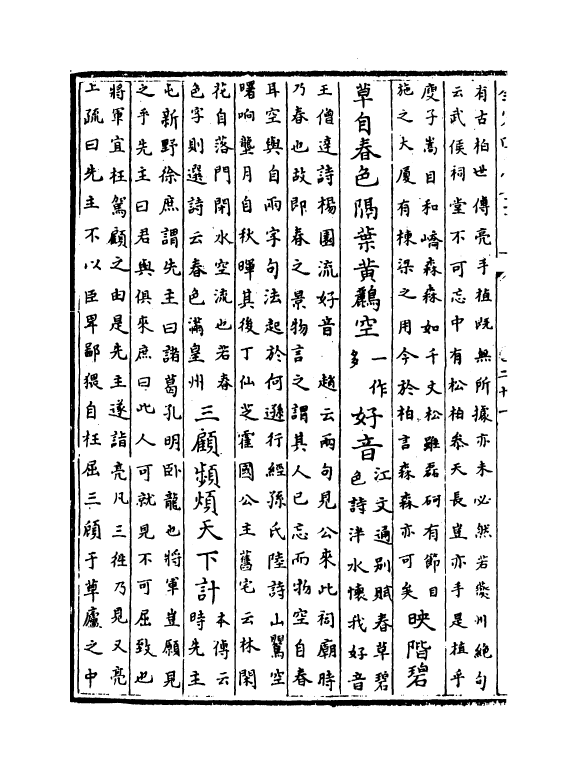 有古柏世傳亮手植既無所據亦未必然若夔州絶句
云武侯祠堂不可忘中有松柏參天長豈亦手是植乎
庾子嵩目和嶠森森如千丈松雖磊砢有節目
施之大厦有棟梁之用今於柏言森森亦可矣
映階碧
草自春色隔葉黃鸝空
一作
多
好音
江文通別賦春草碧
色詩泮水懷我好音
王僧達詩楊園流好音 趙云兩句見公來此祠廟時
乃春也故即春之景物言之謂其人已忘而物空自春
耳空與自兩字句法起於何遜行經孫氏陸詩山鶯空
曙响壟月自秋暉其後丁仙芝霍國公主舊宅云林閑
花自落門閉水空流也若春
色字則選詩云春色滿皇州
三顧頻煩天下計
本傳云
時先主
屯新野徐庶謂先主曰諸葛孔明卧龍也將軍豈願見
之乎先主曰君與俱來庶曰此人可就見不可屈致也
將軍宜枉駕顧之由是先主遂詣亮凡三往乃見又亮
上疏曰先主不以臣卑鄙猥自枉屈三顧于草廬之中
二十一